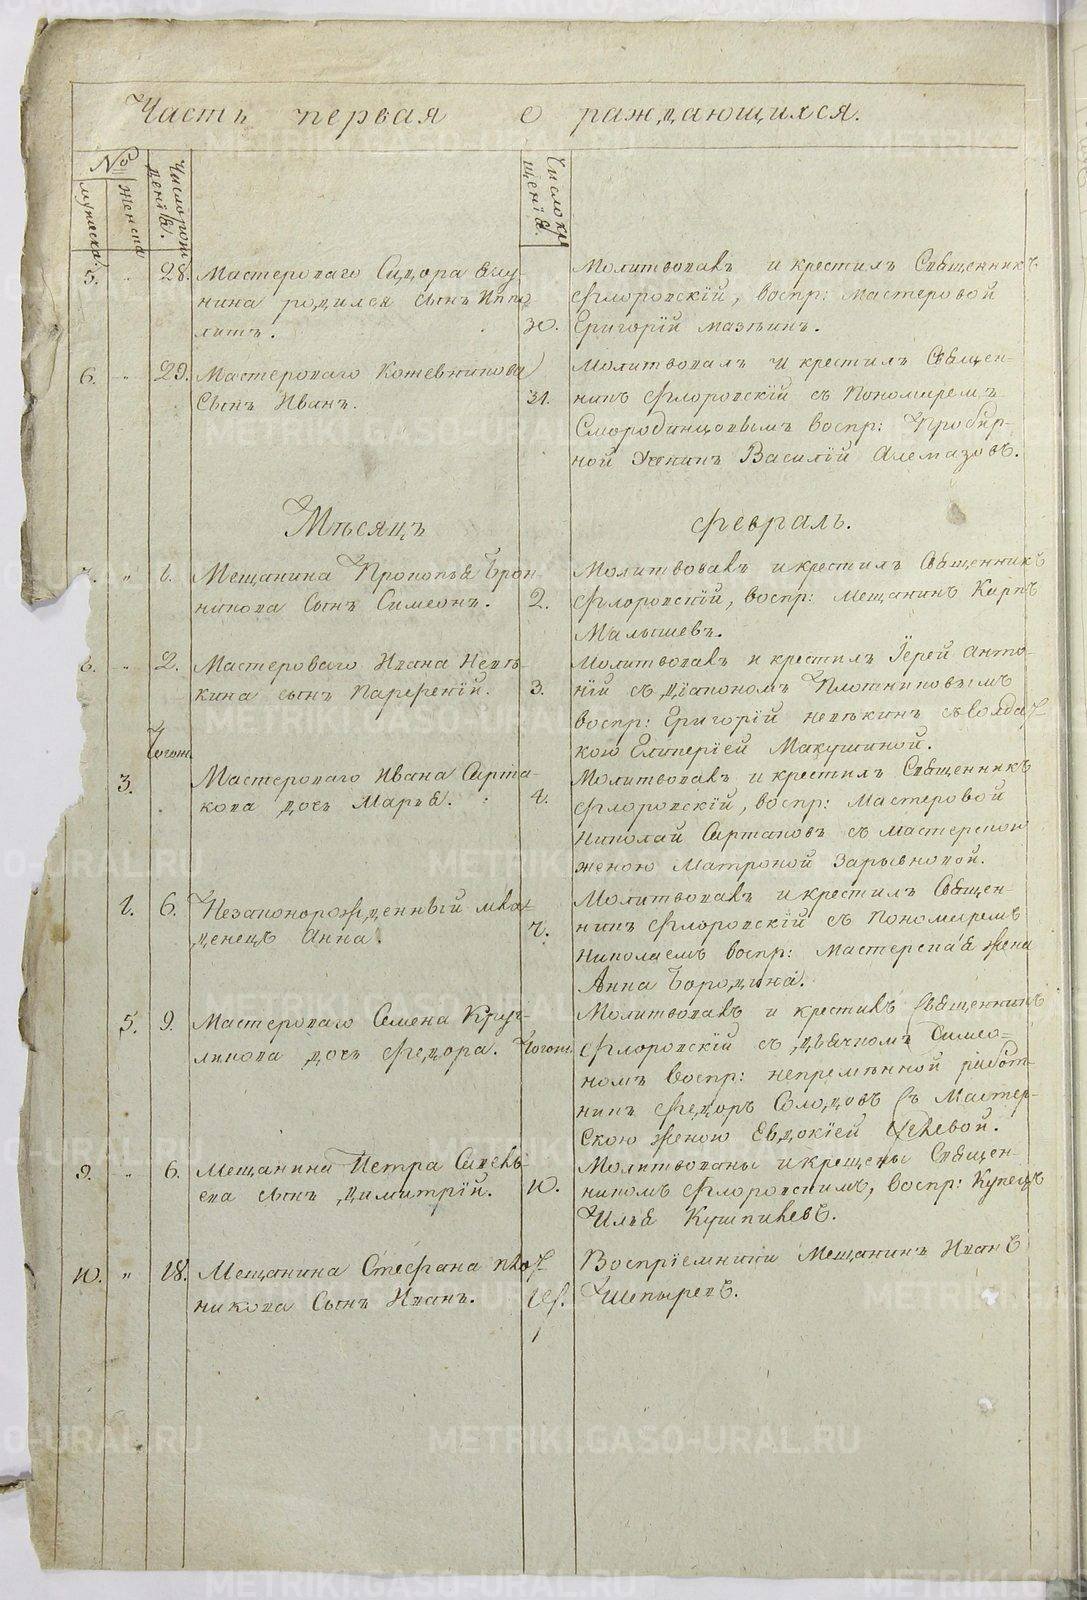 Часть первая о раждающихся.
№
мужеска
женска
Число рож
денїя.
Число кре
щенїя.
5. " 28. Мастероваго Сидора
нина родился сынъ Иппо
литъ.
30.
Молитвовавъ и крестилъ Священникъ
Флоровскїй, воспр: Мастеровой
Григорїй Мазѣинъ.
6. " 29. Мастероваго Кожевникова
Сынъ Иванъ.
31.
Молитвовалъ и крестилъ Священ-
никъ Флоровскїй съ Пономаремъ
Смородинцовымъ воспр: Пробир-
ной Василїй Алемазовъ.
Мѣсяцъ Февраль.
" 1. Мещанина Прокопья Брон
никова Сынъ Симеонъ.
2.
Молитвовавъ и крестилъ Священникъ
Флоровскїй, воспр: Мещанинъ Карпъ
Малышевъ.
" 2. Мастероваго Ивана Невь
кина сынъ Парфенїй.
3.
Молитвовавъ и крестилъ Їерей Анто-
нїй съ дїакономъ Плотниковымъ
воспр: Григорїй съ солдат
кою Гликерїей Макушиной.
3. Тогож. Мастероваго Ивана Сарта-
кова дочь Марья.
4.
Молитвовавъ и крестилъ Священникъ
Флоровскїй, воспр: Мастеровой
Николай Сартаковъ съ мастерской
женою Матроной Зарывновой.
6. Незаконорожденный мла
денецъ Анна.
7.
Молитвовавъ и крестилъ Священ-
никъ Флоровскїй съ Пономаремъ
Николаемъ воспр: Мастерская жена
Анна Бородина.
5. 9. Мастероваго Семена Круг-
ликова дочь Федора.
Тогож.
Молитвовавъ и крестивъ Священникъ
Флоровскїй съ дьячкомъ Симео-
номъ воспр: непремѣнной работ-
никъ Федоръ Солодовъ съ Мастер-
скою женою Евдокїей
9. " 6. Мещанина Петра Савель
ева сынъ Димитрїй.
10.
Молитвованы и крещены Священ-
никомъ Флоровскимъ, воспр: Купецъ
Илья Кушпилевъ.
10. " 18. Мещанина Стефана Плот
никова Сынъ Иванъ.
Воспрїемники Мещанинъ Иванъ
Шепыревъ.
METRIKI.GASO-URAL.RU